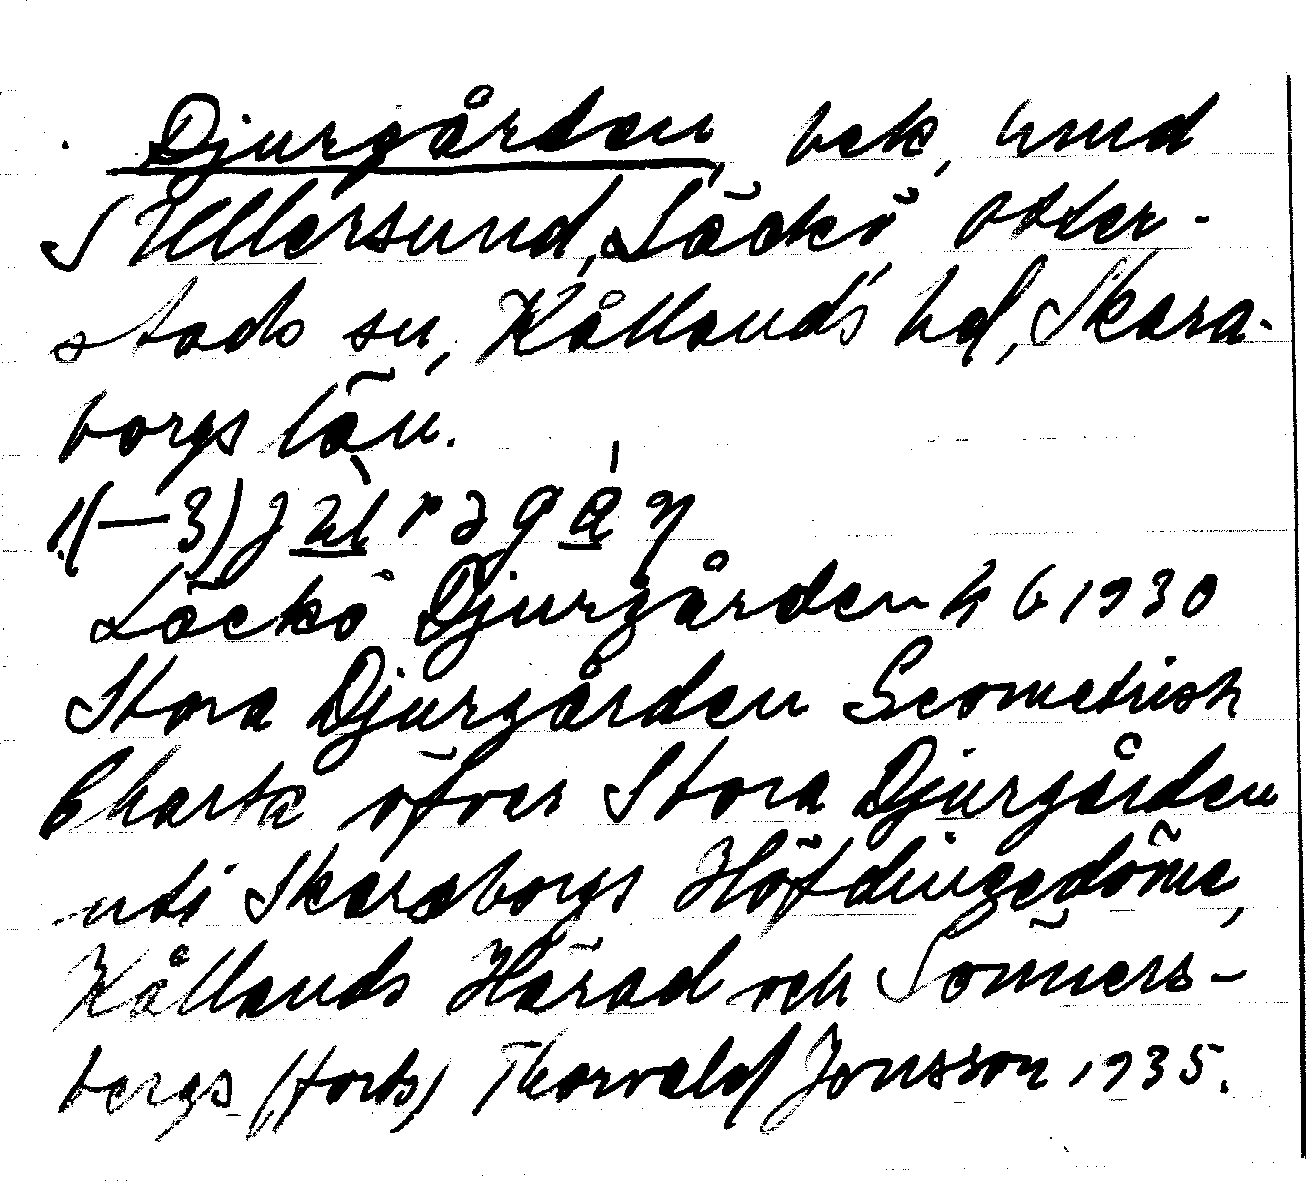 Djurgården, bek, hmd
Ullersund, Läckö, Otter-
stads sn, Kållands hd, Skara-
borgs län.
1(—3)
Läckö Djurgården h G 1930
Stora Djurgården Geometrisk
Charta öfver Stora Djurgården
uti Skaraborgs Höfdingedöme,
Kållands Härad och
bergs (forts) Thorvald Jonsson 1935.